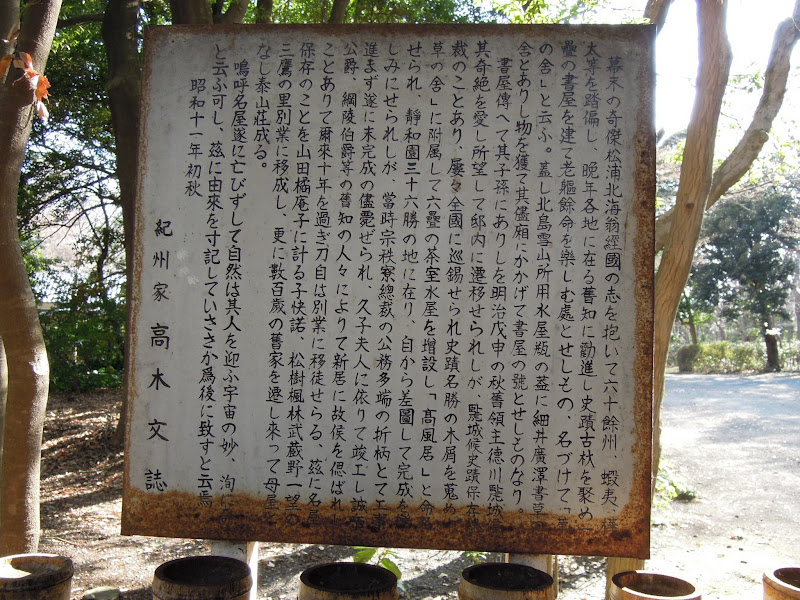 幕末の奇傑松浦北海翁經國の志を抱いて六十餘州 蝦夷 樺
太等を踏偏し、晩年各地に在る舊知に勸進し史蹟古材を聚め
疊の書屋を建て老軀餘命を樂しむ處とせしもの、名づけて「草
の舍」と云ふ。蓋し北島雪山所用水屋瓶の蓋に細井廣澤書草
舍とありし物を獲て其儘廂にかかげて書屋の號とせしものなり。
書屋傳へて其子孫にありしを明治戊申の秋舊領主德川
其奇絶を愛し所望して邸内に遷移せられしが、城候史蹟保存
裁のことあり、屢々全國に巡錫せられ史蹟名勝の木屑を蒐め
草の舍」に附属して六疊の茶室水屋を增設し「髙風居」と命
せられ 靜和園三十六勝の地に在り、自から差圖して完成を
しみにせられしが 當時宗秩寮總裁の公務多端の折柄とて工事
進まず遂に未完成の儘薨ぜられ、久子夫人に依りて竣工し誠
公爵、綱陵伯爵等の舊知の人々によりて新居に故侯を偲ばれ
ことありて爾來十年を過ぎ刀自は別業に移徙せらる、茲に名屋
保存のことを山田橘庵子に計る子快諾、松樹楓林武蔵野一望の
三鷹の里別業に移成し、更に數百歲の舊家を遷し來って母屋と
なし泰山荘成る。
嗚呼名屋遂に亡びずして自然は其人を迎ふ宇宙の妙、洵に
と云ふ可し、茲に由來を寸記していささか爲後に致すと云焉
昭和十一年初秋
紀州家 高木文誌